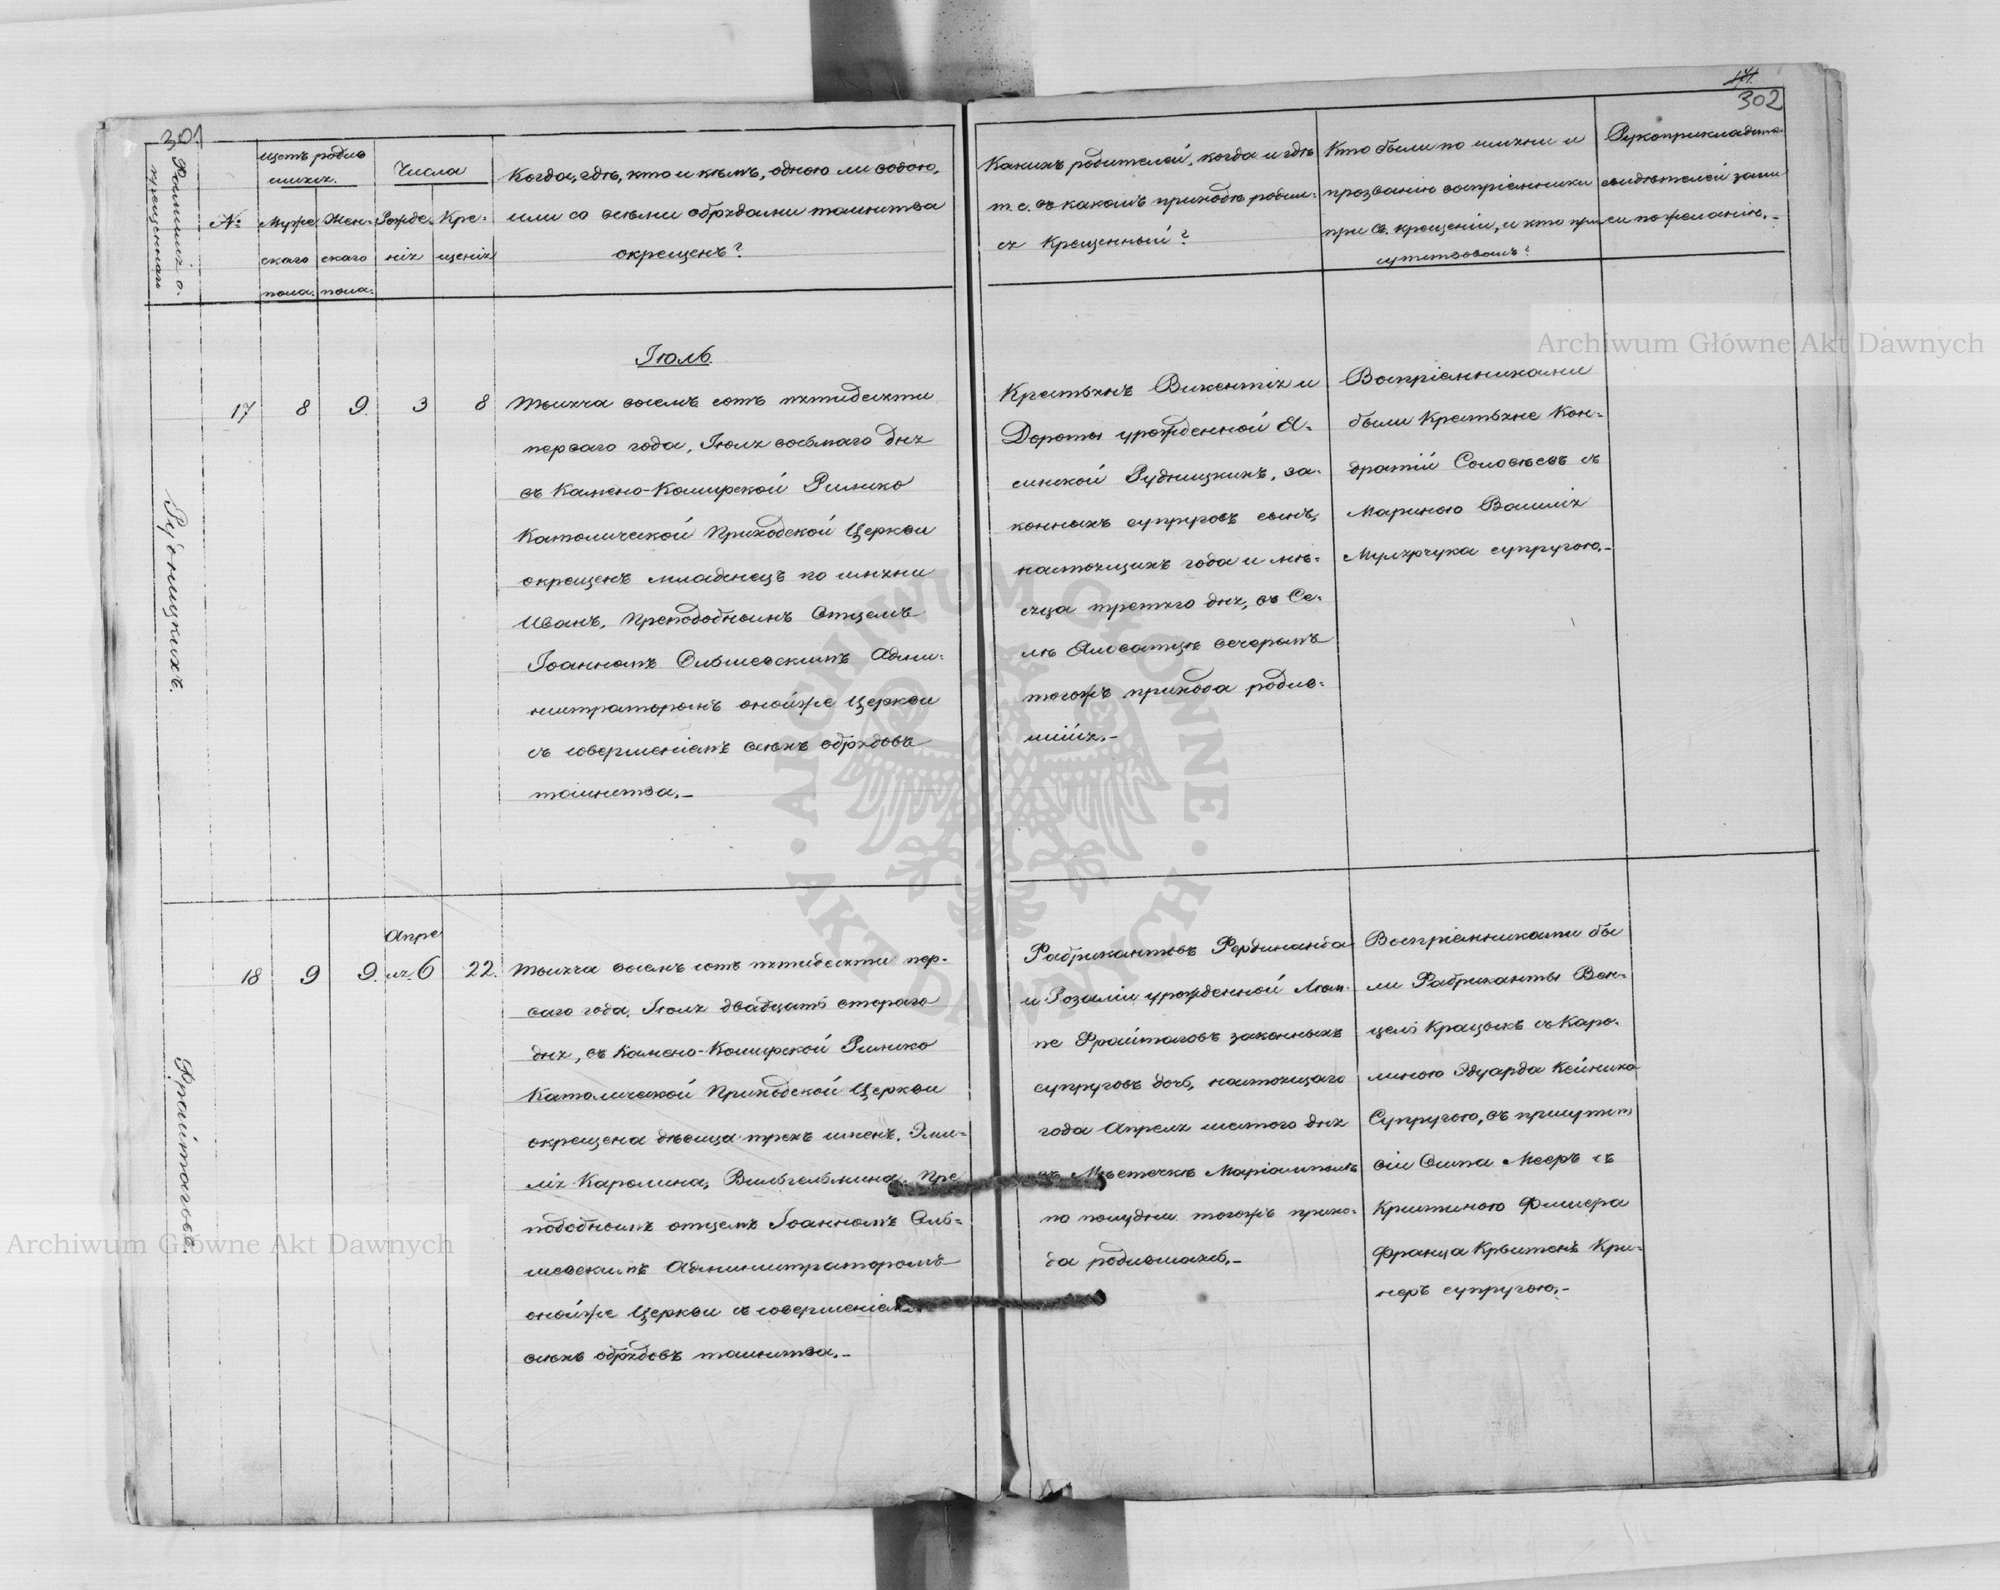 301
302
Фамилія о.
крещеннаго
№
Щетъ родив
шихся.
Муже
скаго
пола.
Жен-
скаго
пола.
Числа
Рожде
нія
Кре-
щенія
Когда, гдѣ, кто и кѣмъ, одною ли водою,
или со всѣми обрядами таинства
окрещенъ?
Какихъ родителей, когда и гдѣ
т. е. въ какомъ приходѣ родил-
ся крещенный?
Кто были по имени и
прозванію воспріемники
при Св. крещеніи, и кто при
сутствовалъ?
Рукоприкладство
свидѣтелей запи
си по желанію.-
Рудницкихъ.
17 8 9. 3 8
Іюль
Тысяча восемь сотъ пятидесяти
перваго года, Іюля восьмаго дня
въ Камено-Коширской Римско
Католической Приходской Церкви
окрещенъ младенецъ по имени
Иванъ, Преподобнымъ Отцемъ
Іоанномъ Ольшевскимъ Адми-
нистраторомъ онойже Церкви
съ совершеніемъ всѣхъ обрядовъ
таинства.-
Крестьянъ Викентія и
Дороты урожденной Я-
синской Рудницкихъ, за-
конныхъ супруговъ сынъ,
настоящихъ года и мѣ-
сяца третяго дня, въ Се-
лѣ вечеромъ
тогожъ прихода родив-
шійся.-
Воспріемниками
были Крестьяне Кон-
дратій Соловьевъ съ
Мариною Василія
Мулярчука супругою.-
Фрайтаговъ.
18 9 9. Апре
ля 6 22.
Тысяча восемь сотъ пятидесяти пер-
ваго года, Іюля двадцать втораго
дня, въ Камено-Коширской Римско
Католической Приходской Церкви
окрещена дѣвица трехъ именъ, Эми-
лія Каролина, Вильгельмина, Пре
подобнымъ отцемъ Іоанномъ Оль-
шевскимъ Администраторомъ
онойже Церкви съ совершеніемъ
всѣхъ обрядовъ таинства.-
Фабрикантовъ Фердинанда
и Розаліи урожденной Люм-
пе Фрайтаговъ законныхъ
супруговъ дочь, настоящаго
года Апреля шестого дня
въ Мѣстечкѣ Маріамполѣ
по полудни тогожъ прихо-
да родившаяся.-
Воспріемниками бы
ли Фабриканты Вен-
цель Крацыкъ съ Каро-
линою Эдуарда Кейника
Супругою, въ присутст
віи Осипа Мееръ съ
Кристиною Фишера
Франца Крыстенъ Кри-
неръ супругою.-
Archiwum Główne Akt Dawnych
Archiwum Główne Akt Dawnych
ARCHIWUM GŁÓWNE AKT DAWNYCH